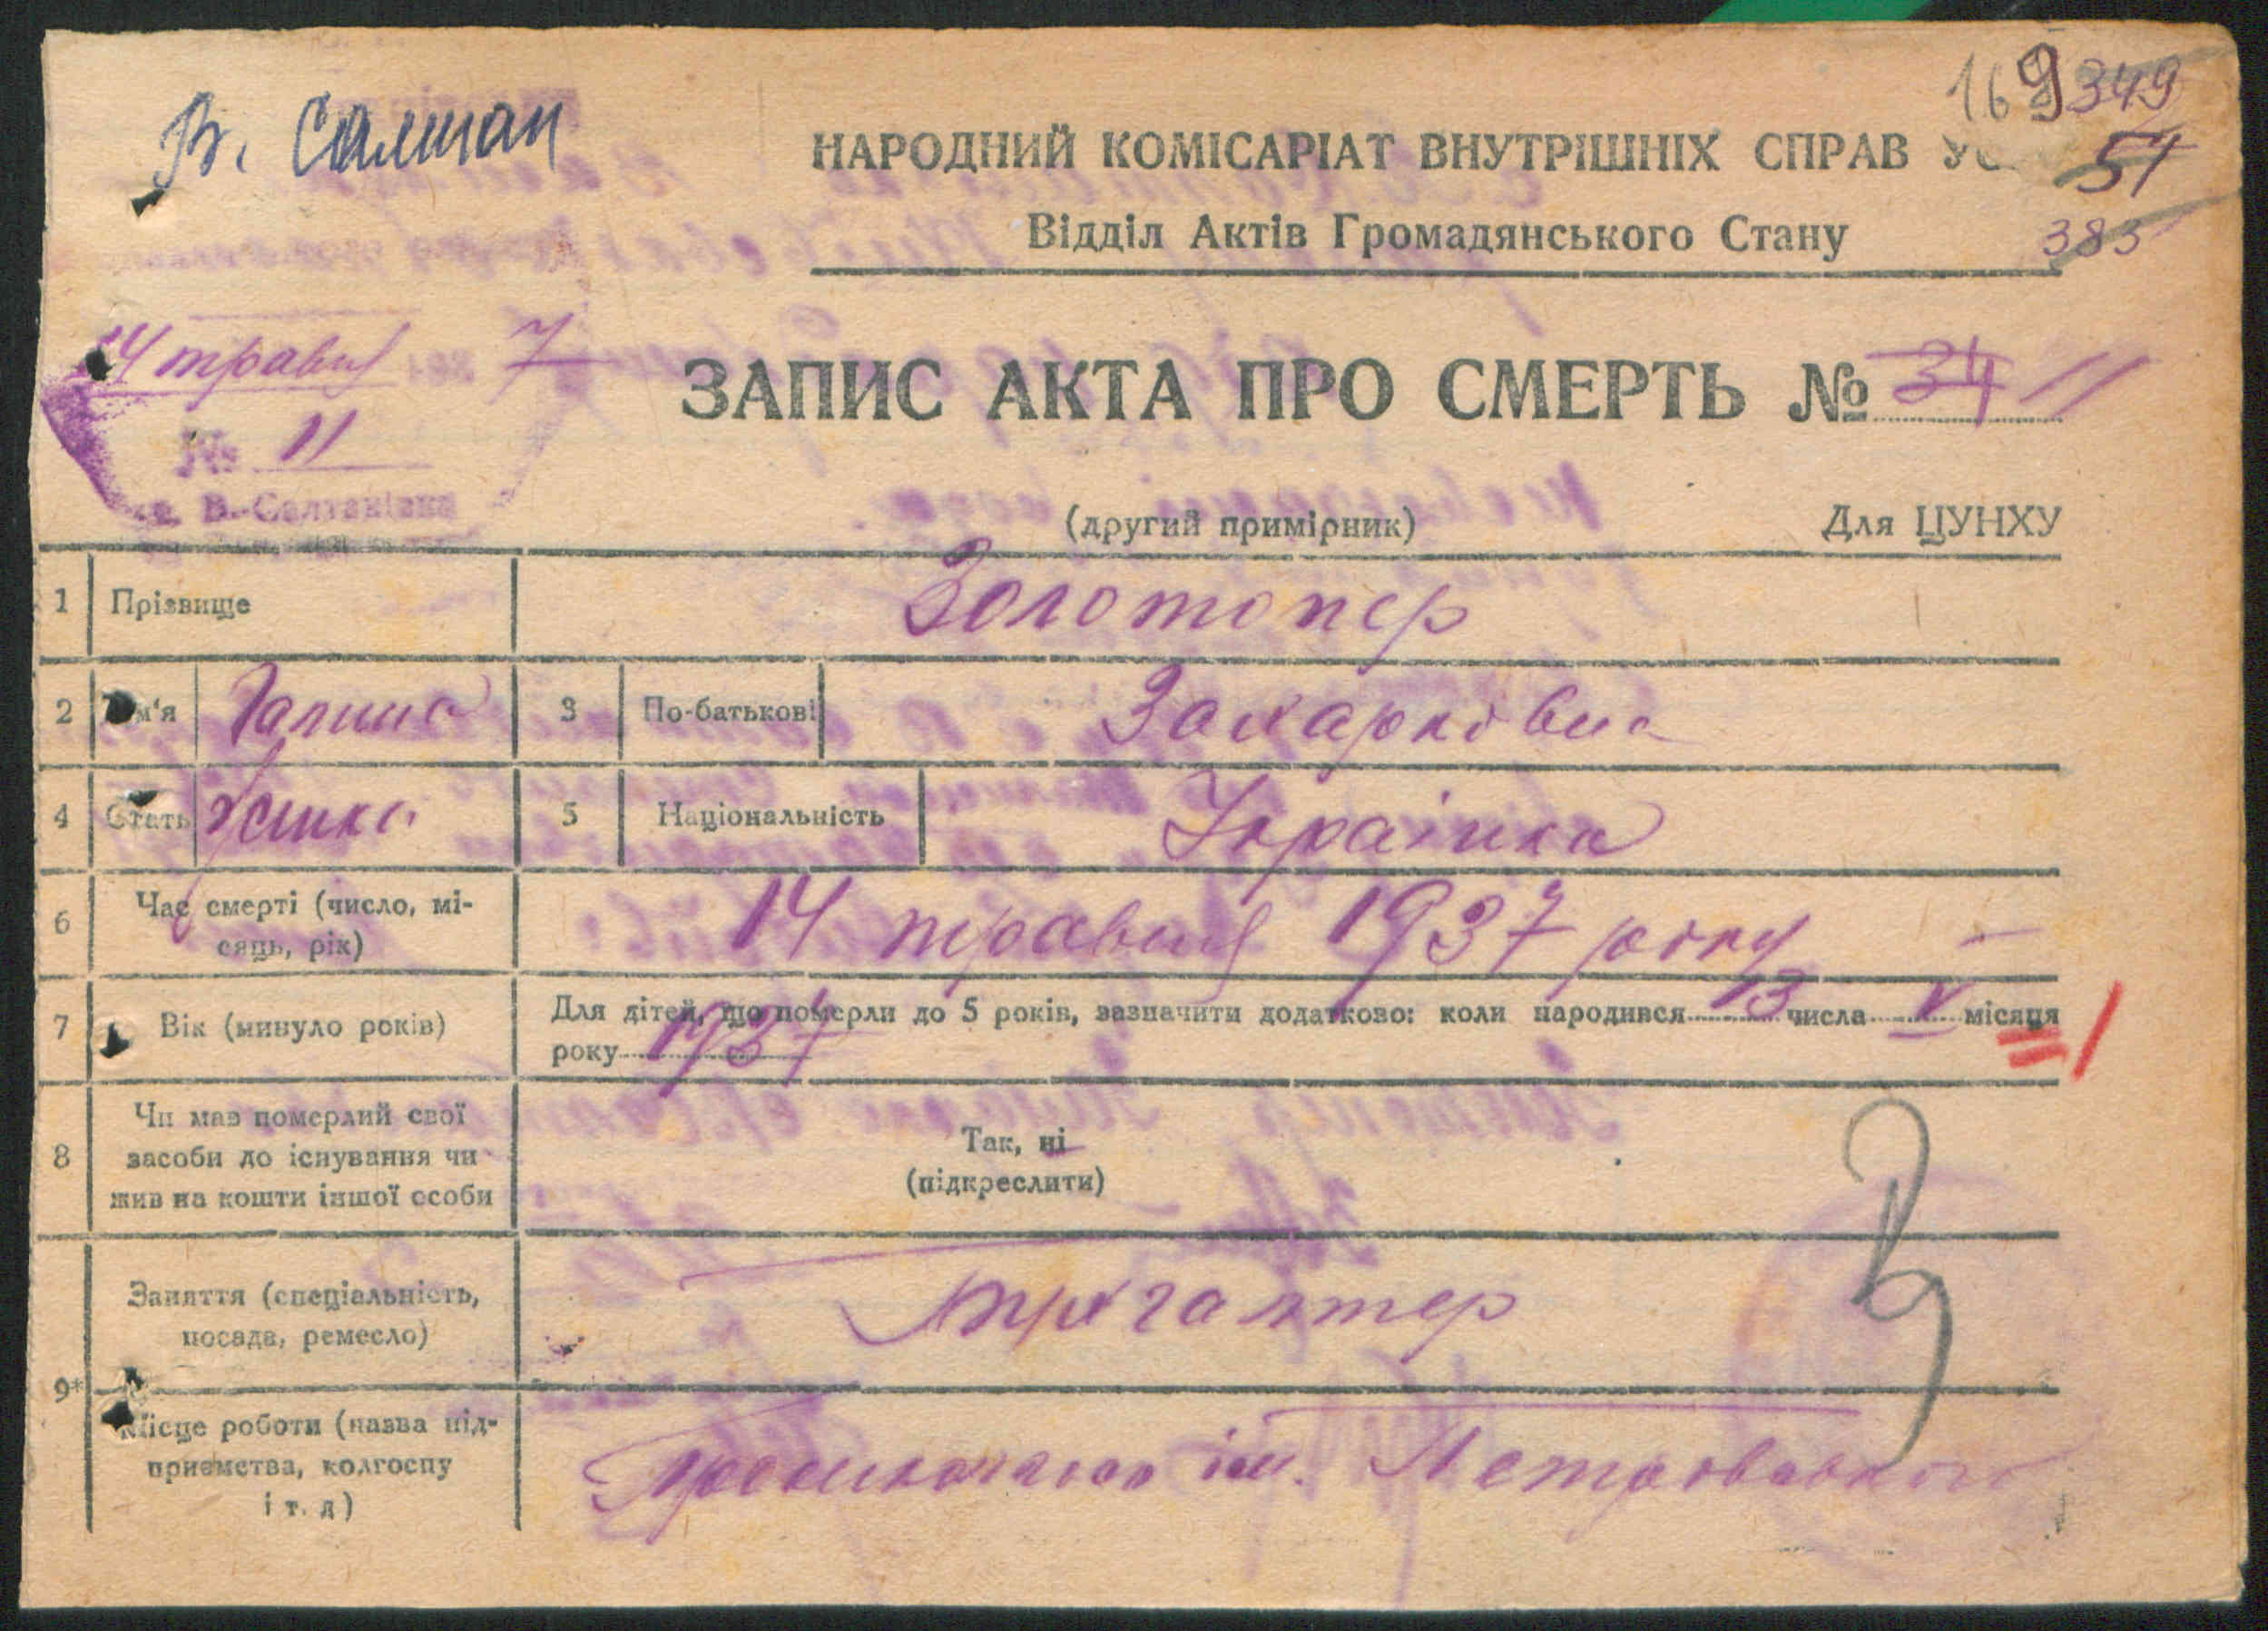 В. Салтан
169 349
НАРОДНИЙ КОМІСАРІАТ ВНУТРІШНІХ СПРАВ
51
Відділ Актів Громадянського Стану
383
14 травня 7
ЗАПИС АКТА ПРО СМЕРТЬ № 34 11
№ 11
В.-Салтанівка
(другий примірник) Для ЦУНХУ
1 Прізвище Золотопер
2 Ім'я Галина 3 По-батькові Захарковна
4 Стать Жінка 5 Національність Українка
6 Час смерті (число, мі-
сяць, рік) 14 травня 1937 року –
7 Вік (минуло років) Для дітей, що померли до 5 років, зазначити додатково: коли народився 13 числа V місяця
року 1937
8 Чи мав померлий свої
засоби до існування чи
жив на кошти іншої особи
Так, ні
(підкреслити)
9* Заняття (спеціальність,
посада, ремесло)
Бухгалтер
Місце роботи (назва під-
приємства, колгоспу
і т. д)
ім. Петровського